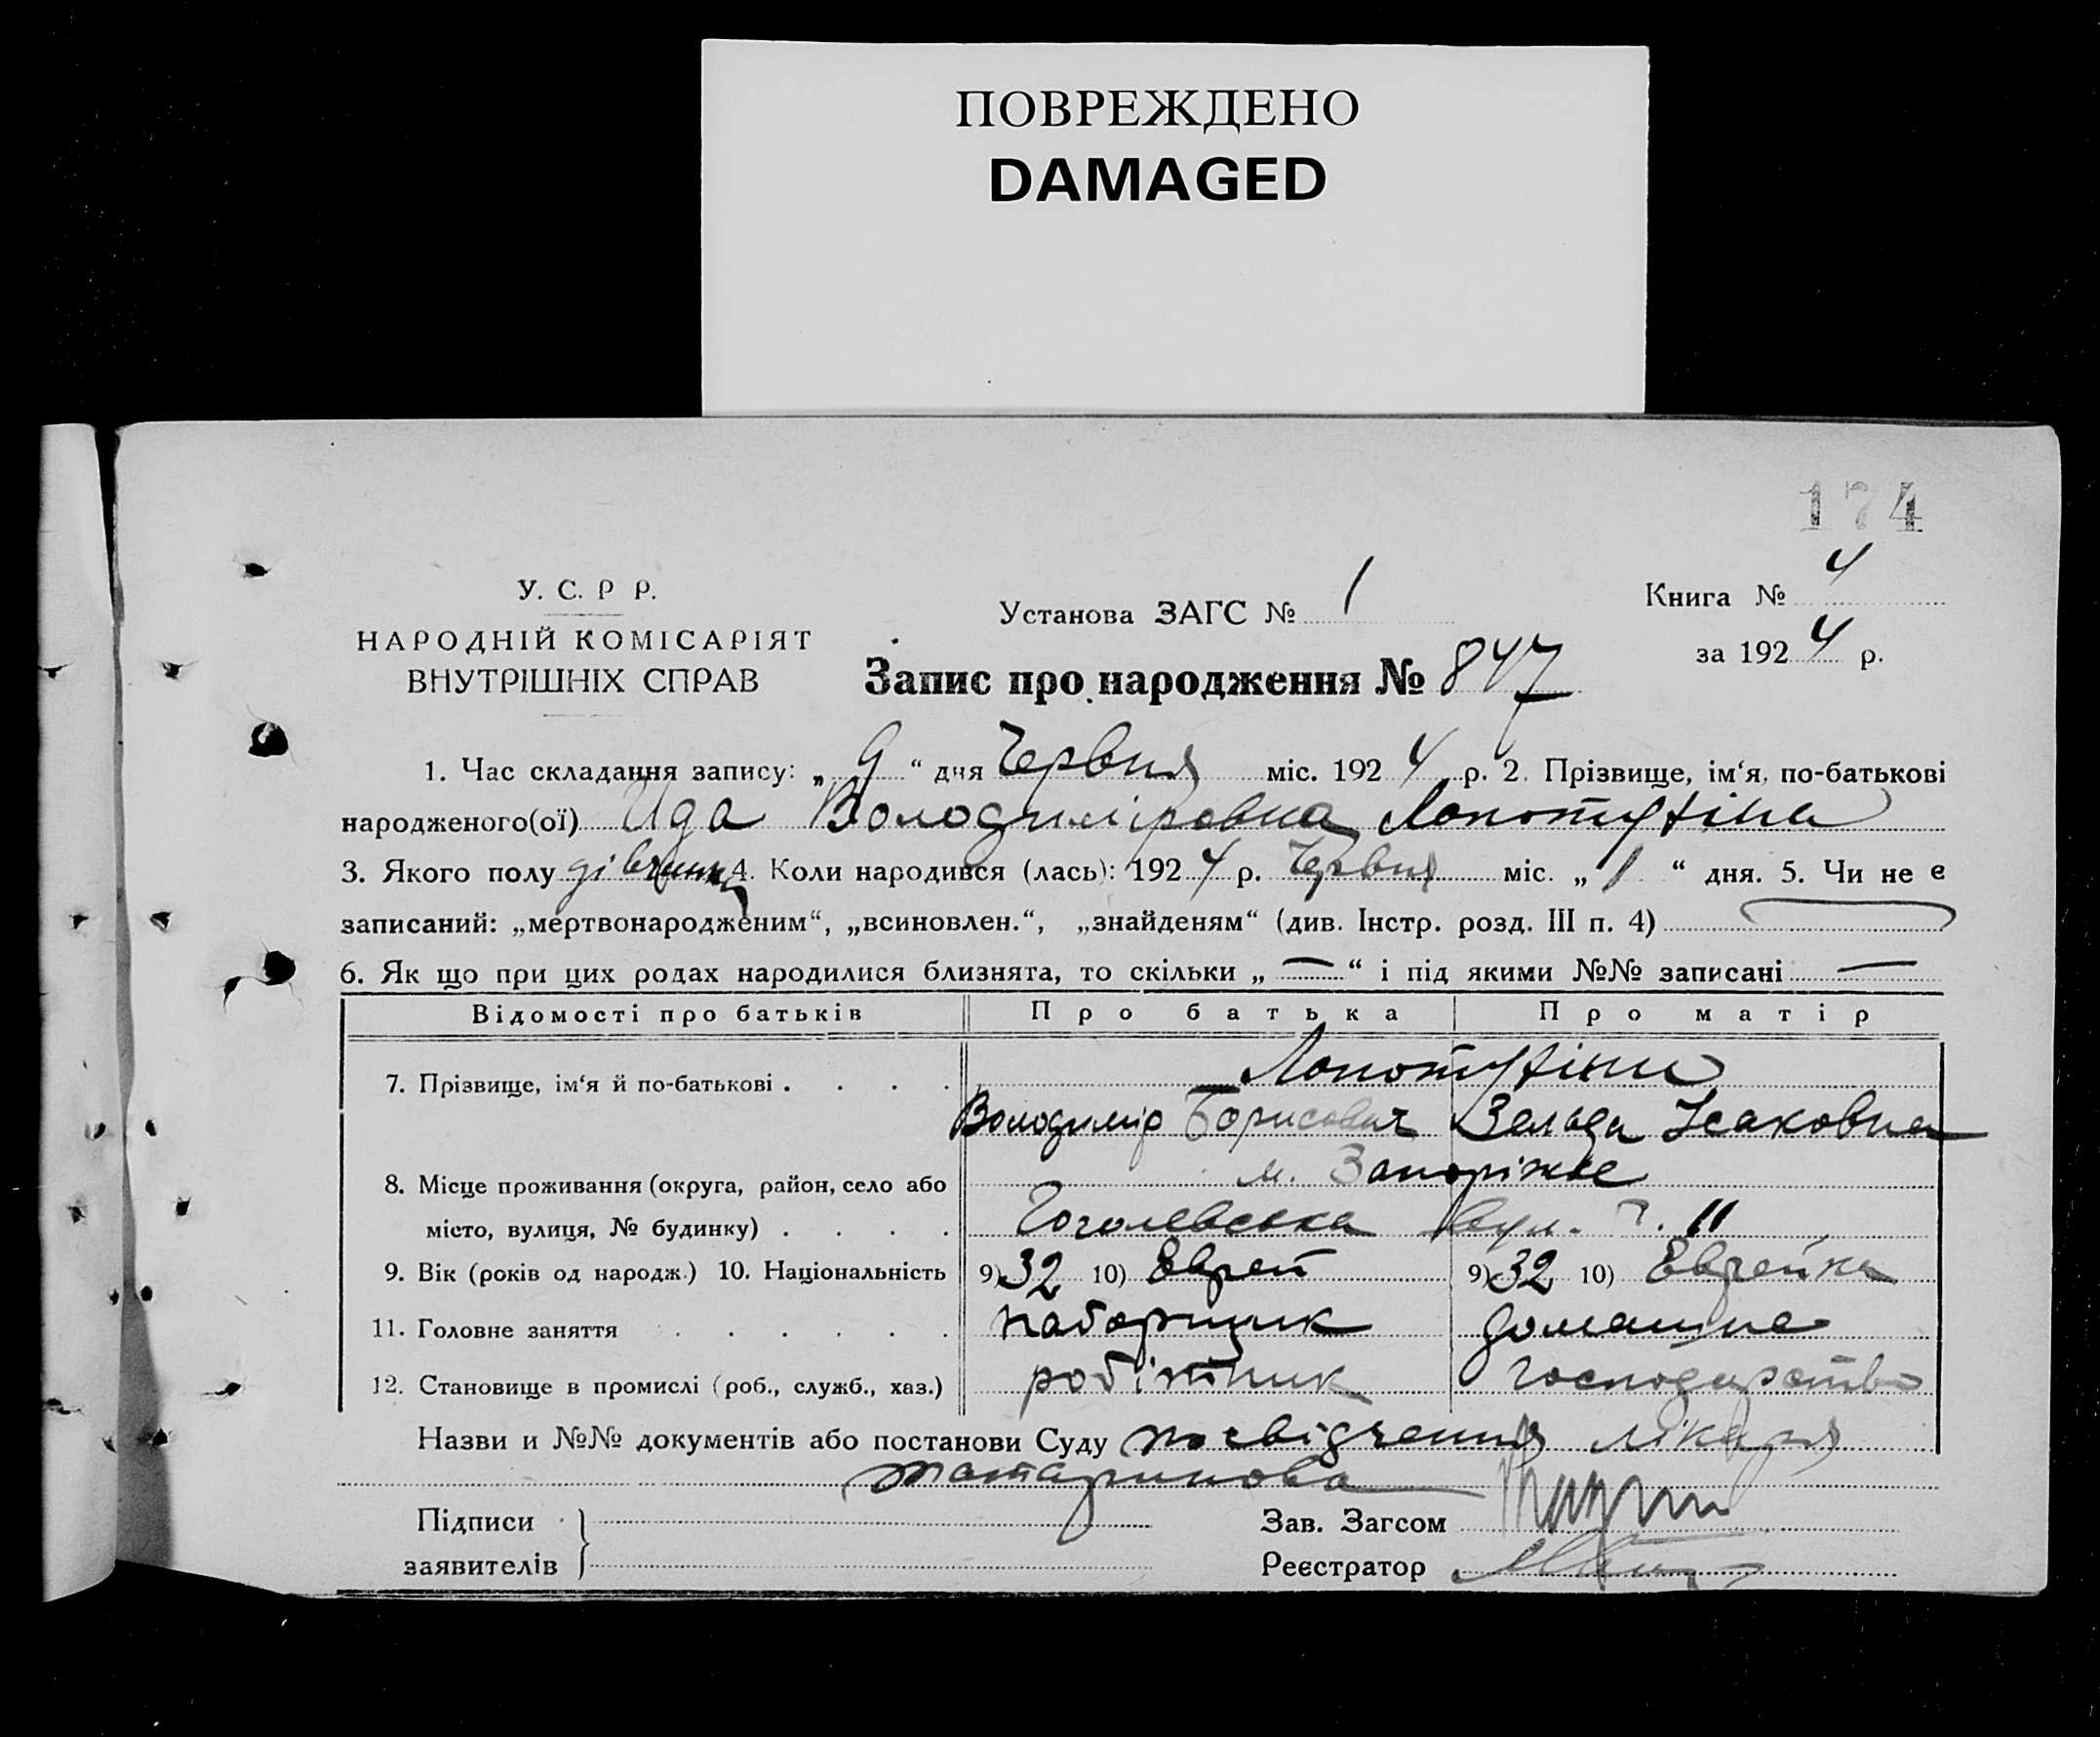 ПОВРЕЖДЕНО
DAMAGED
174
У. С. Р Р.
НАРОДНІЙ КОМІСАРІЯТ
ВНУТРІШНІХ СПРАВ
Установа ЗАГС № 1
Книга № 4
за 192 4 р.
Запис про народження № 847
1. Час складання запису: „ 9 “ дня Червня міс. 192 4 р. 2. Прізвище, ім‘я, по-батькові
народженого(ої) Ида Володиміровна Лопотухіна
3. Якого полу дівчинка 4. Коли народився (лась): 192 4 р. Червня міс. „ 1 “ дня. 5. Чи не є
записаний: „мертвонародженим“, „всиновлен.“, „знайденям“ (див. Інстр. розд. III п. 4)
6. Як що при цих родах народилися близнята, то скільки „ — “ і під якими №№ записані —
Відомості про батьків Про батька Про матір
7. Прізвище, ім‘я й по-батькові . . . . Лопотухіни
Володимір Борисович Зельда Ісаковна
8. Місце проживання (округа, район, село або м. Запоріжже
місто, вулиця, № будинку) . . . . Гоголевська вул. ч. 11
9. Вік (років од народж.) 10. Національність 9) 32 10) Еврей 9) 32 10) Еврейка
11. Головне заняття . . . . . . наборщик домашне
12. Становище в промислі (роб., служб., хаз.) робітник господарство
Назви и №№ документів або постанови Суду посвідчення лікаря
Татаринова
Підписи
заявителів
Зав. Загсом
Реєстратор